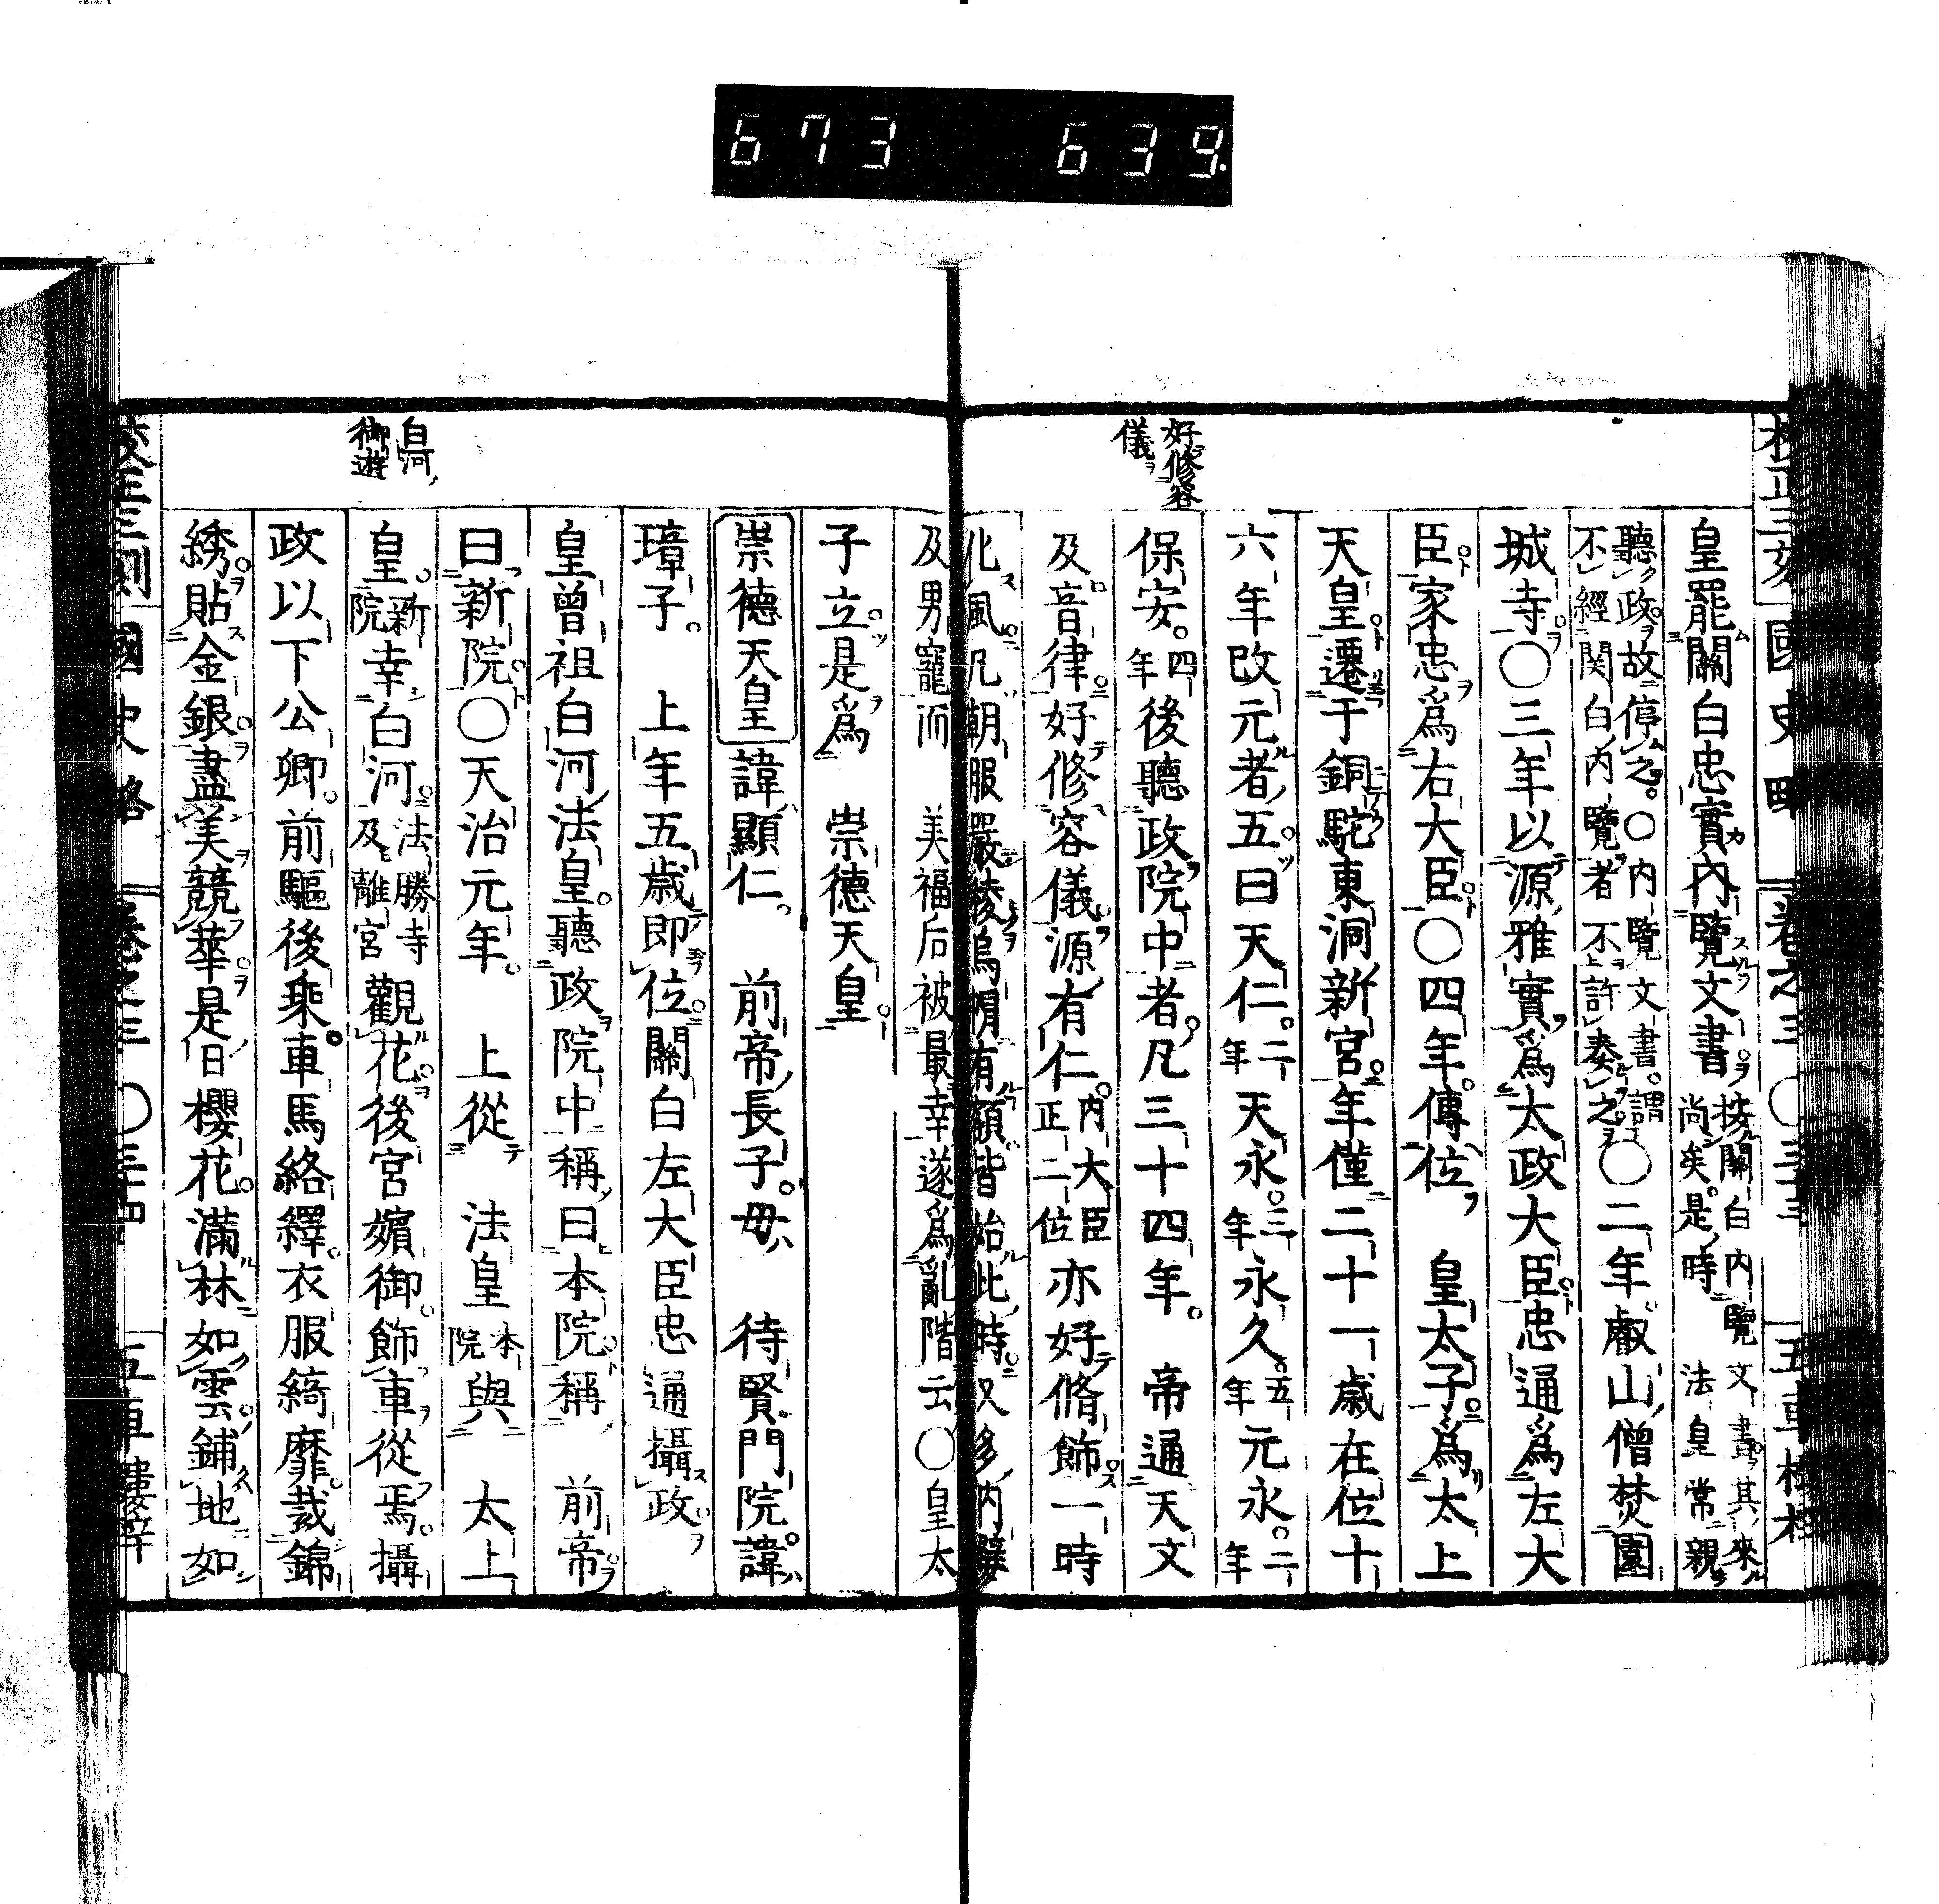 673 639.
校正三刻 國史略 卷之三 〇三十三 五車樓梓
好修容
儀
皇罷關白忠實內覽文書按關白內覽文書其來
尚矣是時法皇常親
聽政故停之〇內覽文書謂
不經関白內覽者不許奏之〇二年叡山僧焚園
城寺〇三年以源雅實爲太政大臣忠通爲左大
臣家忠爲右大臣〇四年傳位皇太子爲太上
天皇遷于銅駝東洞新宮年僅二十一歲在位十
六年改元者五曰天仁二年天永三年永久五年元永二年
保安四年後聽政院中者凡三十四年帝通天文
及音律好修容儀源有仁內大臣正二位亦好脩飾一時
化風凡朝服嚴稜烏帽有額皆始此時又多內嬖
及男寵而美福后被最幸遂爲亂階云〇皇太
子立是爲崇德天皇
崇德天皇諱顯仁前帝長子母待賢門院諱
璋子上年五歲即位關白左大臣忠通攝政
皇曾祖白河法皇聽政院中稱曰本院稱前帝
曰新院〇天治元年上從法皇本院與太上
皇新院幸白河法勝寺及離宮觀花後宮嬪御飾車從焉攝
政以下公卿前驅後乘車馬絡繹衣服綺靡裁錦
綉貼金銀盡美競華是日櫻花滿林如雲鋪地如
白河
御遊
校正三刻 國史略 卷之三 〇三十四 五車樓梓